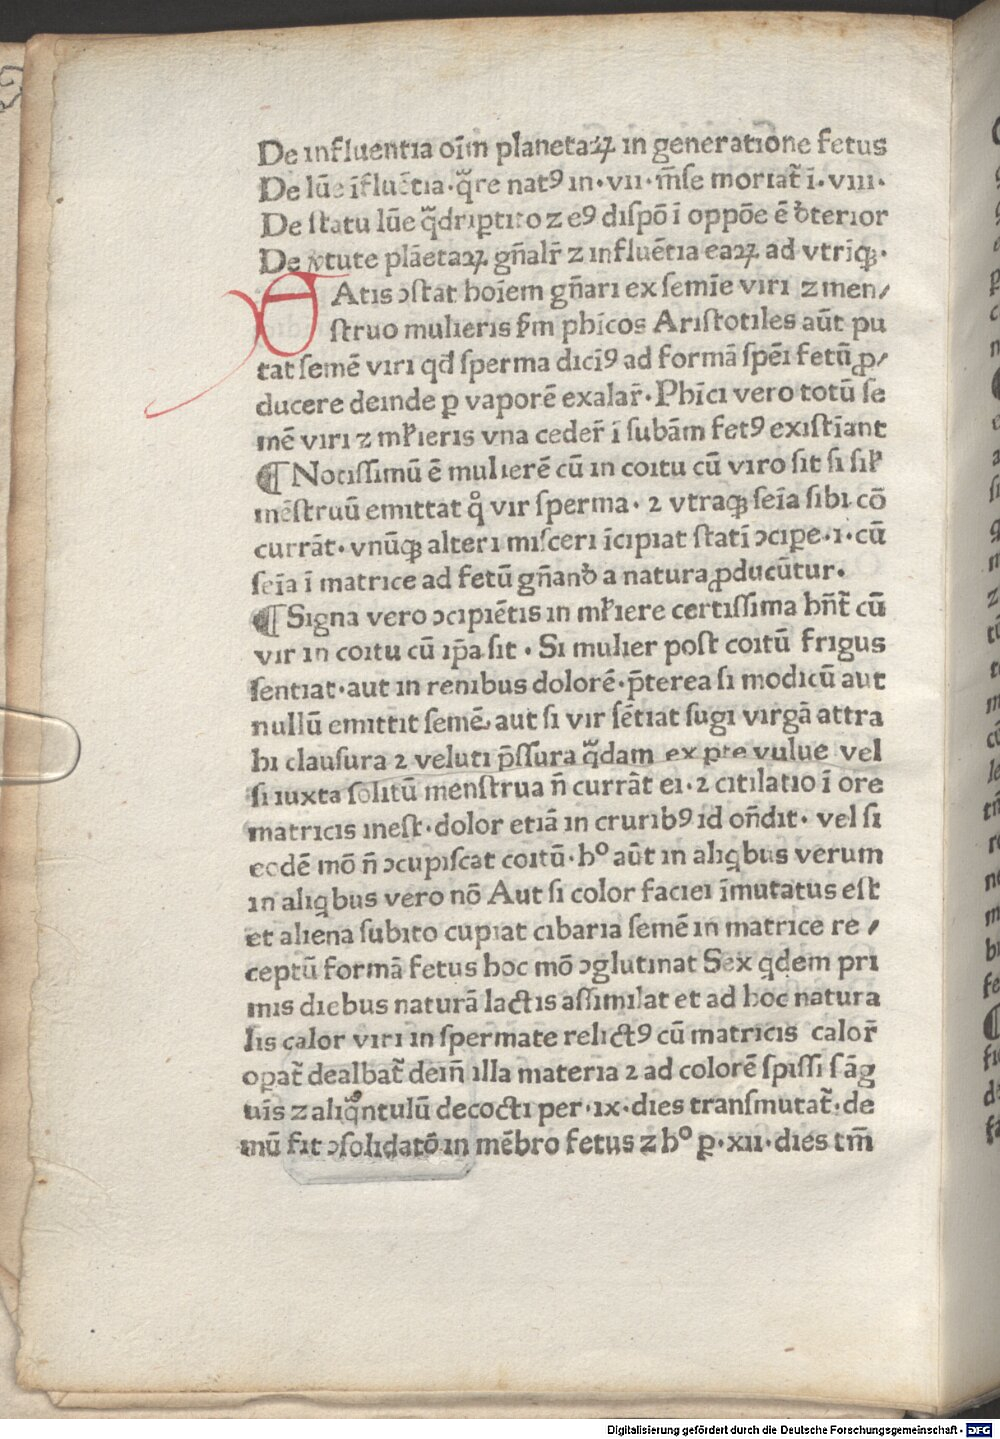 De influentia oīm planetaꝝ in generatione fetus
De lūe īfluētia·q̃re natꝰ in·vii·m̄se moriat̃ ī·viii·
De statu lūe q̃driptito ⁊ eꝰ dispō ī oppōe ē d̉terior
De v̉tute plāetaꝝ gn̄alr̃ ⁊ influētia eaꝝ ad vtriq̃ꝫ·
Atis ↄstat hoiēm gn̄ari ex semīe viri ⁊ men/
struo mulieris ẜm phīcos Aristotiles aūt pu
tat semē viri qd̄ sperma dicīꝰ ad formā spēi fetū ꝓ/
ducere deinde ꝑ vaporē exalar̃·Phīci vero totū se
mē viri ⁊ mƚieris vna ceder̃ ī subām fetꝰ existīant
¶ Notissimū ē mulierē cū in coitu cū viro sit si siƚ
mēstruū emittat qͦ vir sperma· ⁊ vtraqꝫ seīa sibi cō
currāt·vnūqꝫ alteri misceri īcipiat statī ↄciꝑe·i·cū
seīa ī matrice ad fetū gn̄and̉ a natura ꝓducūtur·
¶ Signa vero ↄcipiētis in mƚiere certissima hn̄t̃ cū
vir in coitu cū ip̄a sit · Si mulier post coitū frigus
sentiat·aut in renibus dolorē·p̄terea si modicū aut
nullū emittit semē, aut si vir sētiat sugi virgā attra
hi clausura ⁊ veluti p̄ssura q̃dam ex ꝑte vulue vel
si iuxta solitū menstrua n̄ currāt ei·⁊ citilatio ī ore
matricis inest·dolor etiā in cruribꝰ id on̄dit· vel si
eodē mō n̄ ↄcupiscat coitū·hͦ aūt in aliqbus verum
in aliqbus vero nō Aut si color faciei īmutatus est
et aliena subito cupiat cibaria semē in matrice re /
ceptū formā fetus hoc mō ↄglutinat Sex qdem pri
mis diebus naturā lactis assimilat et ad hoc natura
lis calor viri in spermate relictꝰ cū matricis calor̃
oꝑat̃ dealbat̃ dein̄ illa materia ⁊ ad colorē spissi sāg
uīs ⁊ aliq̃ntulū decocti per·ix·dies transmutat̃·de
mū fit ↄsolidatō in mēbro fetus ⁊ hͦ ꝑ·xii·dies tm̄
Digitalisierung gefördert durch die Deutsche Forschungsgemeinschaft - DFG